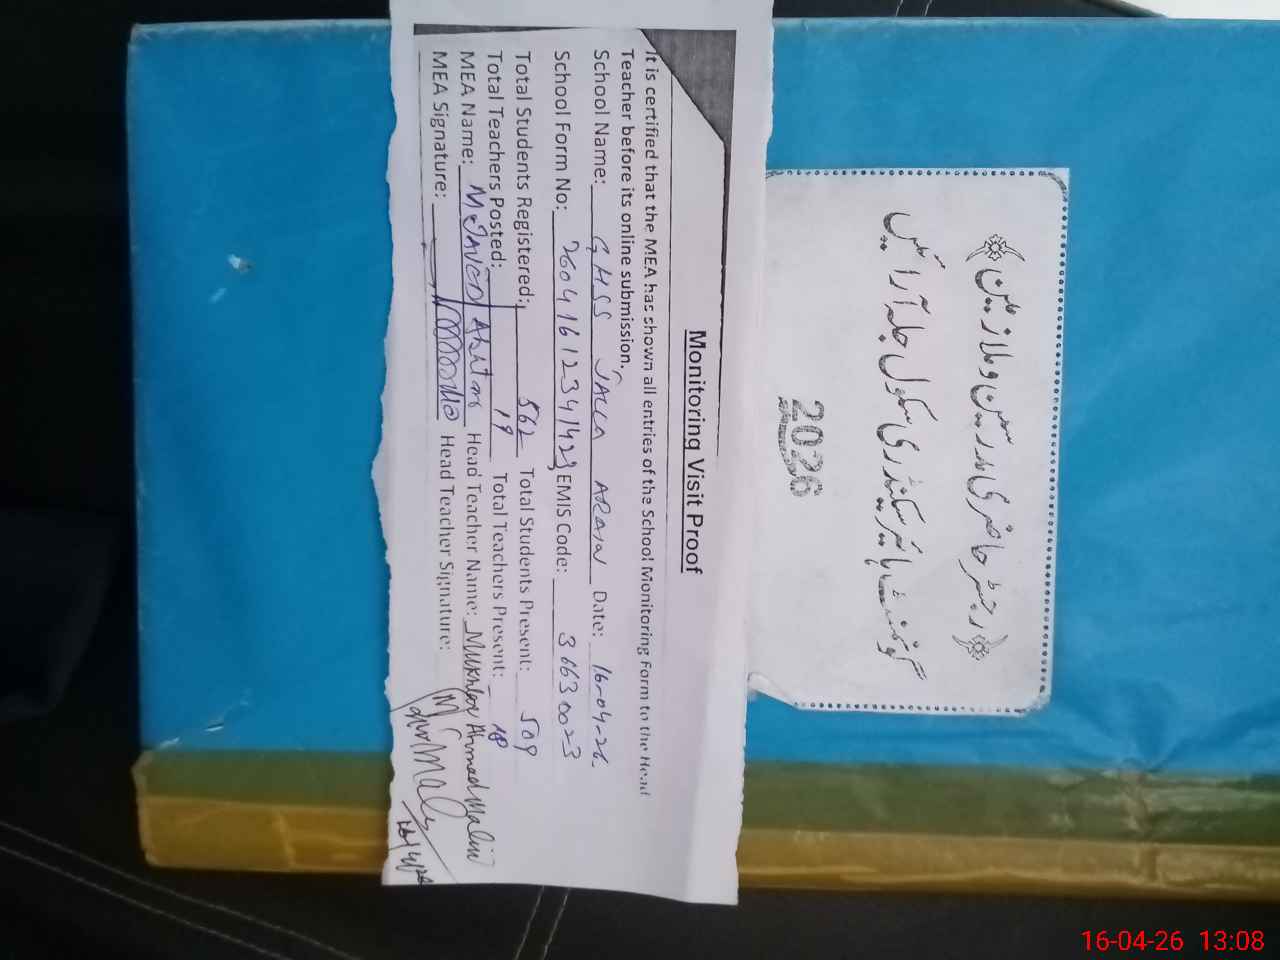 Monitoring Visit Proof
It is certified that the MEA has shown all entries of the School Monitoring Form to the Head
Teacher before its online submission.
School Name: GHSS JALLA ARAIN Date: 16-04-26
School Form No: 26041612341423 EMIS Code: 36630023
Total Students Registered: 562 Total Students Present: 509
Total Teachers Posted: 19 Total Teachers Present: 18
MEA Name: M JAVED AKHTAR Head Teacher Name: Mukhtar Ahmad Malik
MEA Signature: Head Teacher Signature:
16/4/26
رجسٹر حاضری مدرسین و ملازمین
گورنمنٹ ہائیر سیکنڈری سکول جلہ آرائیں
2026
16-04-26 13:08